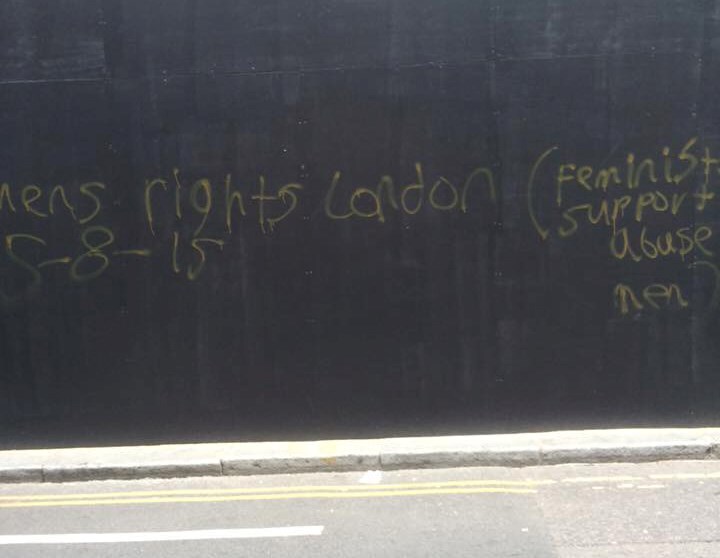 mens rights London (feminist
support
abuse
men)
5-8-15